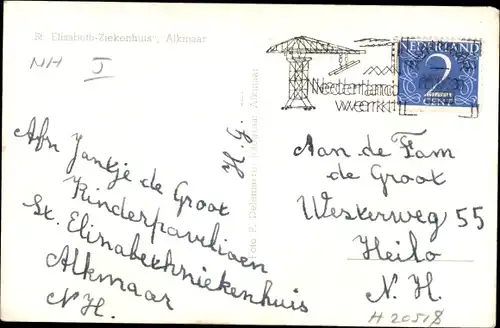 St. Elisabeth-Ziekenhuis, Alkmaar
NH J
Afn Jantje de Groot
Kinderpaviljoen
St. Elisabethniekenhuis
Alkmaar
N.H.
H. G.
Foto F. Delemarre, Alkmaar
Nederland
werkt
NEDERLAND
2
CENT
Aan de Fam
de Groot
Westerweg 55
Heilo
N. H.
H 20518